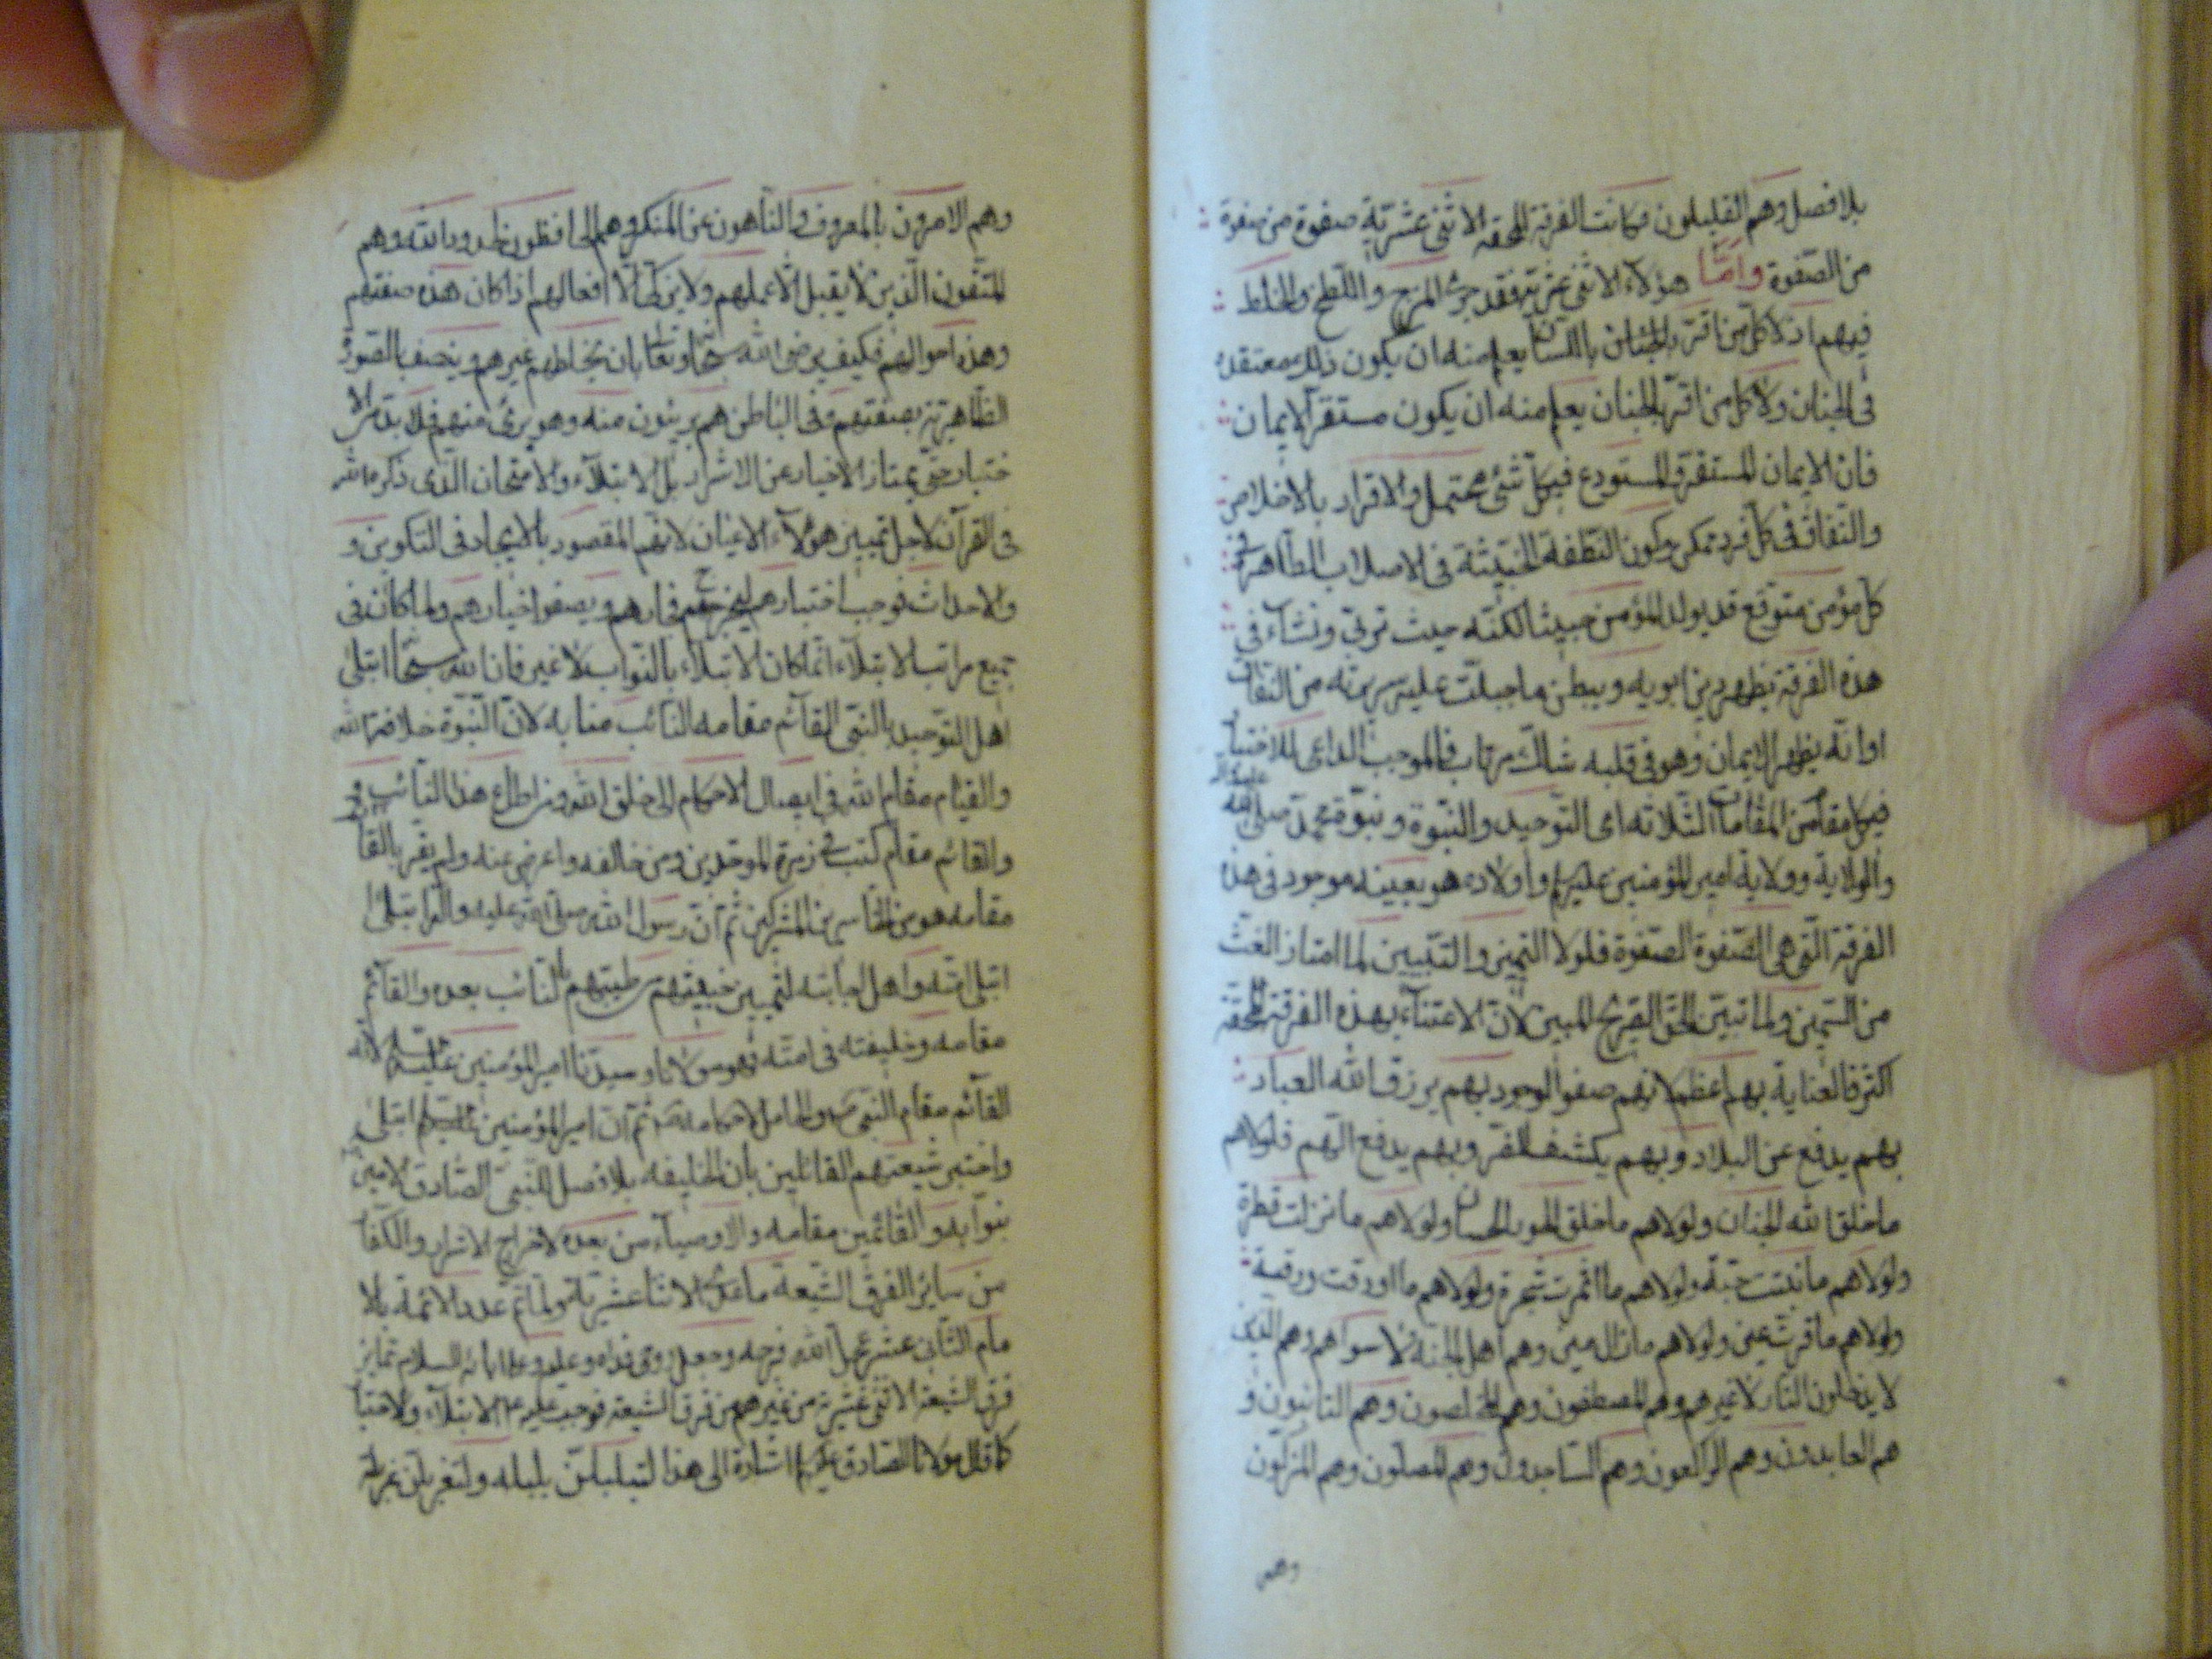 بلا فصل وهم القليلون فكانت الفرقة المحقه الاثنى عشرية صفوة من صفوة
من الصّفوة وامّا هؤلاء الاثنى عشرية فقد جرى المزج واللّطخ والخلط
فيهم اذ لا كل من اقرّ باللسان يعلم منه ان يكون ذلك معتقده
فى الجنان ولا كل من اقرّ بالجنان يعلم منه ان يكون مستقر الايمان
فان الايمان المستقر والمستودع فى كل شئ محتمل والاقرار بالاخلاص
والنّفاق فى كل فرد ممكن وكون النّطفة الخبيثة فى الاصلاب الطّاهرة فى
كل مؤمن متوقع قد يولد المؤمن خبيثا لكنّه حيث تربّى ونشاء فى
هذه الفرقة يظهر دين ابويه ويبطن ما جبلت عليه سريرته من النفاق
او انّه يظهر الايمان وهو فى قلبه شاكّ مرتاب فالموجب الداعى للاختبا
فى كل مقام من المقامات الثّلاثه اى التّوحيد والنبّوة ونبوّة محمّد صلى الله عليه واله
والولاية وولاية امير المؤمنين عليه السلم واولاده هو بعينه موجود فى هذه
الفرقة الّتى هى الصّفوة الصّفوة فلولا التميز والتبيين لما امتاز الغثّ
من السّمين ولما تبيّن الحقّ الصّريح المبين لانّ الاعتناء بهذه الفرقة المحقّة
اكثر فالعناية بهم اعظم لانهم صفو الوجود بهم يرزق الله العباد
بهم يدفع عن البلاد وبهم يكشف الضر وبهم يدفع الهم فلولاهم
ما خلق الله الجنان ولولاهم ما خلق الحور الحسان ولولاهم ما نزلت قطرة
ولولاهم ما نبتت حبّة ولولاهم ما اثمرت شجرة ولولاهم ما اورقت ورقة
ولولاهم ما قرّت عين ولولاهم ما زال مين وهم اهل الجنه لا سواهم وهم الذين
لا يدخلون النّار لا غيرهم وهم المصطفون وهم المخلصون وهم التائبون و
هم العابدون وهم الراكعون وهم السّاجدون وهم المصلّون وهم المزكّون
وهم
وهم الامرون بالمعروف والنّاهون عن المنكر وهم الحافظون لحدود الله وهم
المتّقون الّذين لا يقبل الّا عملهم ولا يزكّى الّا افعالهم اذا كان هذه صفتهم
وهذه احوالهم فكيف يرضى الله سبحانه وتعالى بان يخالطهم غيرهم ويتّصف بالصّورة
الظّاهرية بصفتهم وفى الباطن هم بريئون منه وهو برئ منهم فلا بدّ من الا
ختبار حتّى يمتاز الاخيار عن الاشرار بل الابتلاء والامتحان الّذى ذكره الله
فى القرآن لاجل تمييز هؤلاء الاعيان لانهم المقصود بالايجاد فى التكوين و
والاحداث فوجب اختبارهم ليخرج فجارهم ويصفوا اخيارهم ولما كان فى
جميع مراتب الابتلاء انّما كان الابتلاء بالنّواب لا غير فان الله سبحانه ابتلى
اهل التّوحيد بالنبّى القآئم مقامه النائب منابه لانّ النّبوّة خلافة الله
والقيام مقام الله فى ايصال الاحكام الى خلق الله ومن اطاع هذا النّائب
والقائم مقام كتب فى زمرة الموحّدين ومن خالفه واعرض عنه ولم يقر بالقآئم
مقامه هو من الخاسرين المشركين ثم انّ رسول الله صلى الله عليه واله ابتلى
ابتلى امّته واهل اجابته لتمييز خبيثهم من طيبهم بالنّائب بعده والقآئم
مقامه وخليفته فى امّته وهو مولانا وسيدنا امير المؤمنين عليه السلم لانه
القآئم مقام النبّى ص والحامل لاحكامه ثم انّ امير المؤمنين عليه السلم ابتلى
واختبر شيعتهم القائلين بأن الخليفه بلا فصل للنبّى الصّادق الامين
بنوّابه والقائمين مقامه والاوصياء من بعده لاخراج الاشرار والكفّا
من سائر الفرق الشّيعة ما عدى الاثنا عشريّة ولما تمّ عدد الائمة بالا
مام الثّانى عشر عجل الله فرجه وجعل روحى فداه وعليه وعلى ابائه السلام تمايز
فرق الشيعة الاثنى عشرية من غيرهم من فرق الشيعة فوجب عليهم الابتلاء والاختبا
كما قال مولانا الصّادق عليه السلم اشارة الى هذا لتبلبلنّ بلبله ولتغربلنّ غربلة